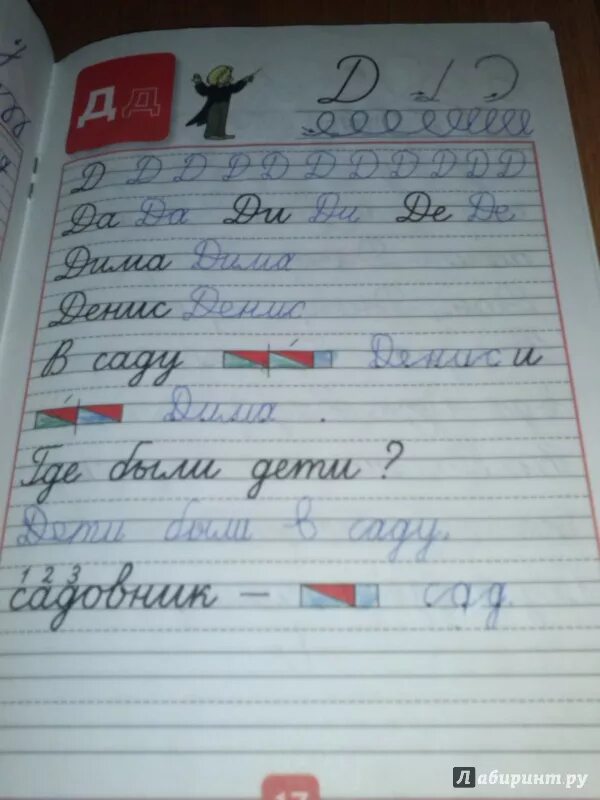 Д д
Д
Д Д Д Д Д Д Д Д Д Д Д
Да Да Ди Ди Де Де
Дима Дима
Денис Денис
В саду Денис и
Дима .
Где были дети ?
Дети были в саду.
1 2 3
садовник — сад.
17
Лабиринт.ру